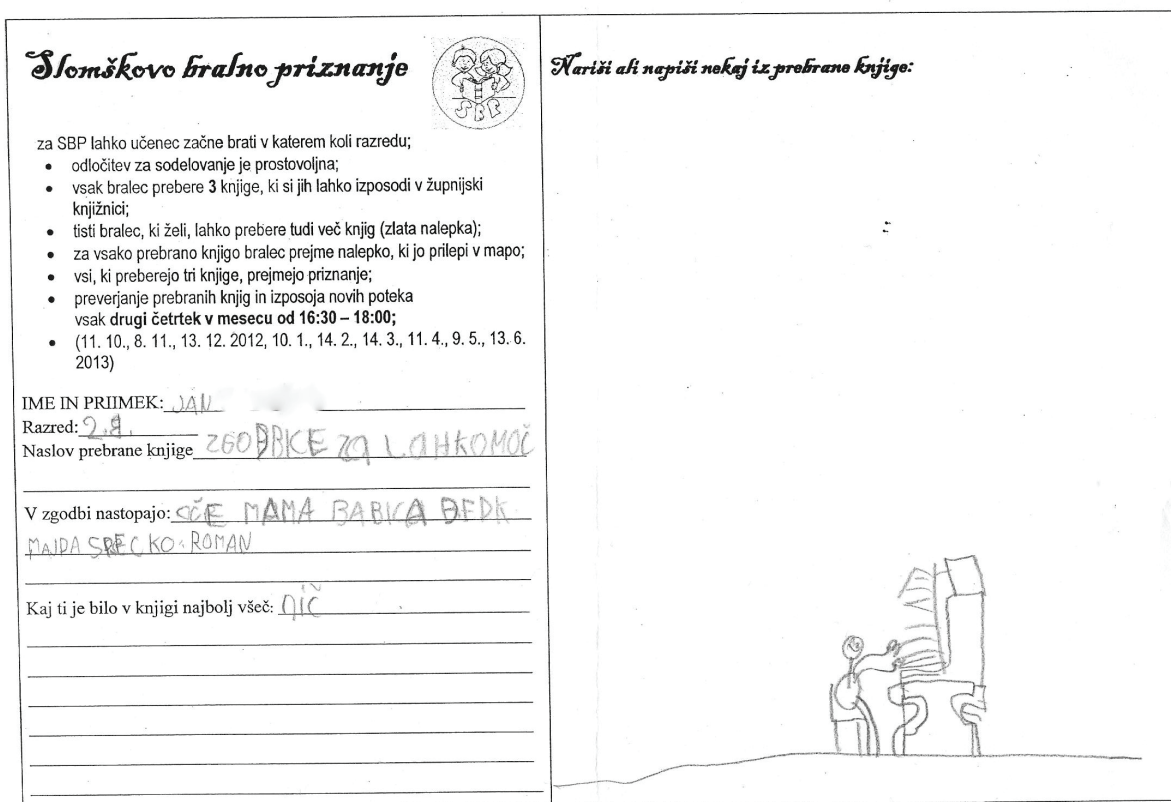 Slomškovo bralno priznanje
SBP
za SBP lahko učenec začne brati v katerem koli razredu;
• odločitev za sodelovanje je prostovoljna;
• vsak bralec prebere 3 knjige, ki si jih lahko izposodi v župnijski
knjižnici;
• tisti bralec, ki želi, lahko prebere tudi več knjig (zlata nalepka);
• za vsako prebrano knjigo bralec prejme nalepko, ki jo prilepi v mapo;
• vsi, ki preberejo tri knjige, prejmejo priznanje;
• preverjanje prebranih knjig in izposoja novih poteka
vsak drugi četrtek v mesecu od 16:30 – 18:00;
• (11. 10., 8. 11., 13. 12. 2012, 10. 1., 14. 2., 14. 3., 11. 4., 9. 5., 13. 6.
2013)
IME IN PRIIMEK: JAN
Razred: 2.
Naslov prebrane knjige ZGODBICE ZA LAHKOMOČ
V zgodbi nastopajo: OČE MAMA BABICA DEDK
MAJDA SREČKO ROMAN
Kaj ti je bilo v knjigi najbolj všeč: NIČ
Nariši ali napiši nekaj iz prebrane knjige: